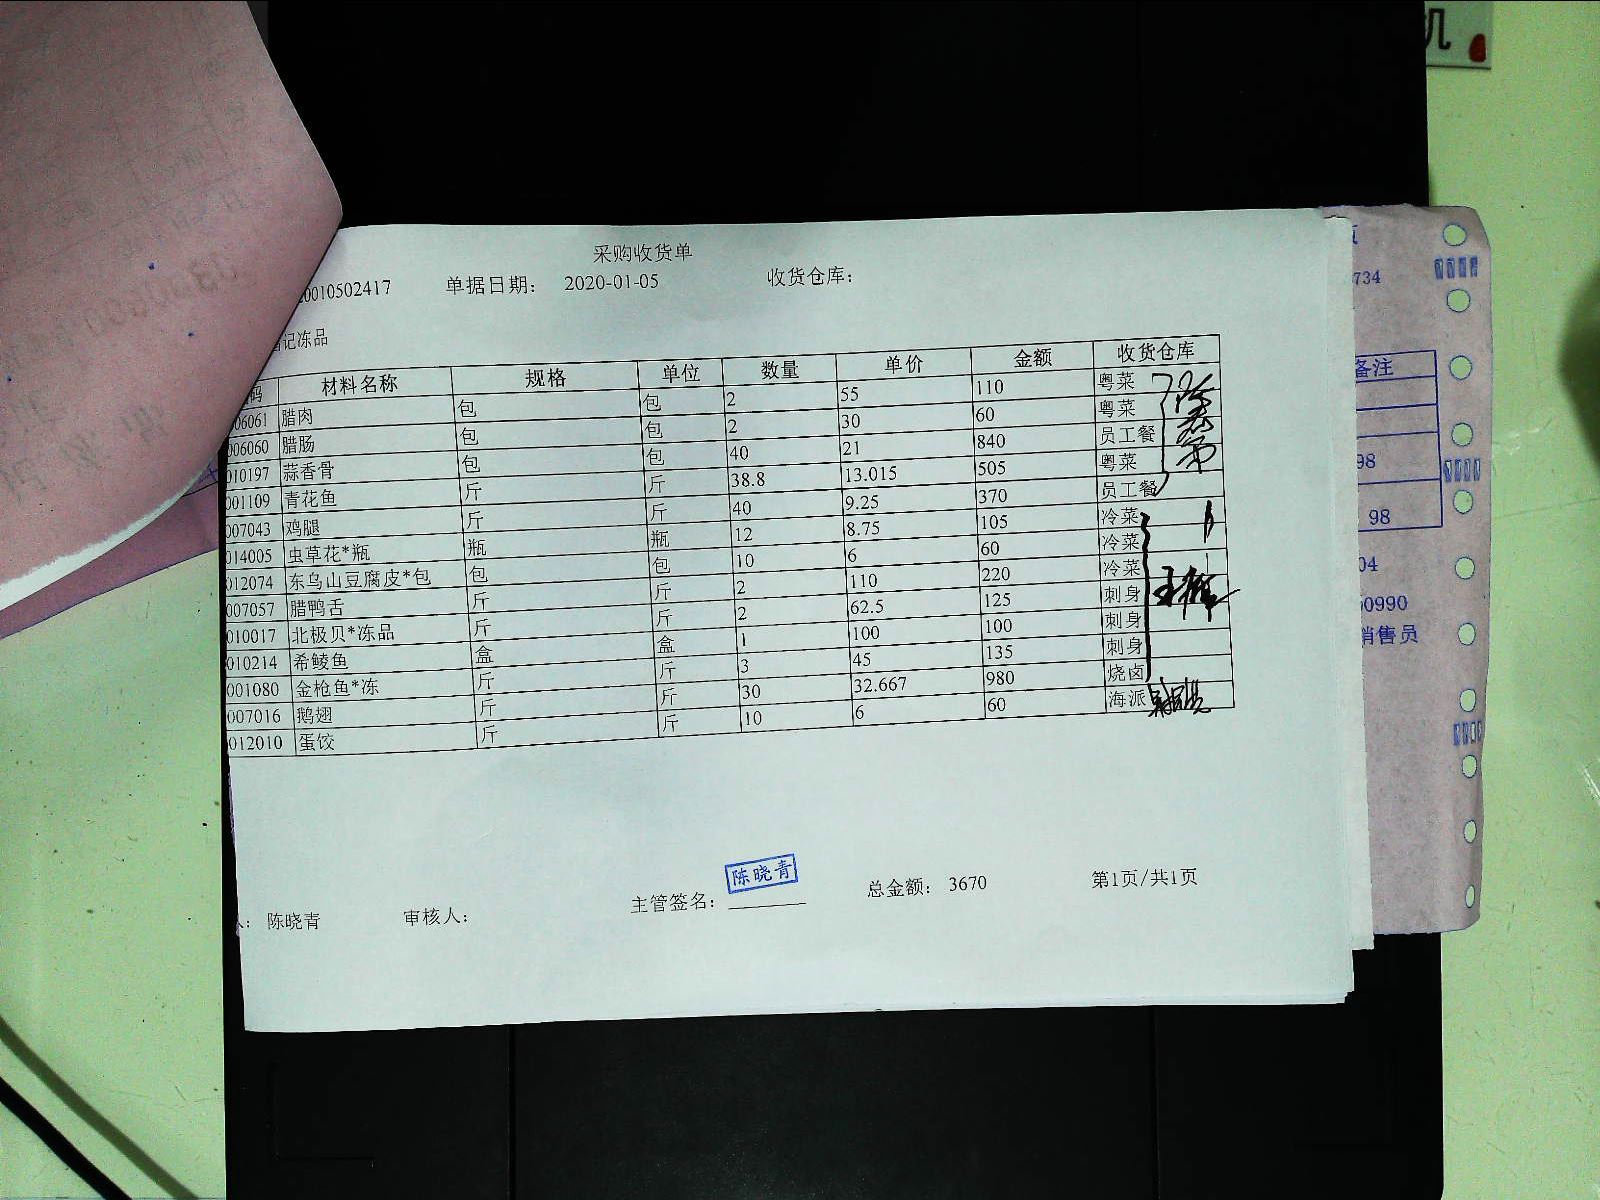 采购收货单
0010502417 单据日期: 2020-01-05 收货仓库:
记冻品
码 材料名称 规格 单位 数量 单价 金额 收货仓库
006061 腊肉 包 包 2 55 110 粤菜
006060 腊肠 包 包 2 30 60 粤菜
010197 蒜香骨 包 包 40 21 840 员工餐
001109 青花鱼 斤 斤 38.8 13.015 505 粤菜
007043 鸡腿 斤 斤 40 9.25 370 员工餐
014005 虫草花*瓶 瓶 瓶 12 8.75 105 冷菜
012074 东乌山豆腐皮*包 包 包 10 6 60 冷菜
007057 腊鸭舌 斤 斤 2 110 220 冷菜
010017 北极贝*冻品 斤 斤 2 62.5 125 刺身
010214 希鲮鱼 盒 盒 1 100 100 刺身
001080 金枪鱼*冻 斤 斤 3 45 135 刺身
007016 鹅翅 斤 斤 30 32.667 980 烧卤
012010 蛋饺 斤 斤 10 6 60 海派
陈晓青
人: 陈晓青 审核人: 主管签名: 总金额: 3670 第1页/共1页
734
备注
98
98
04
00990
销售员